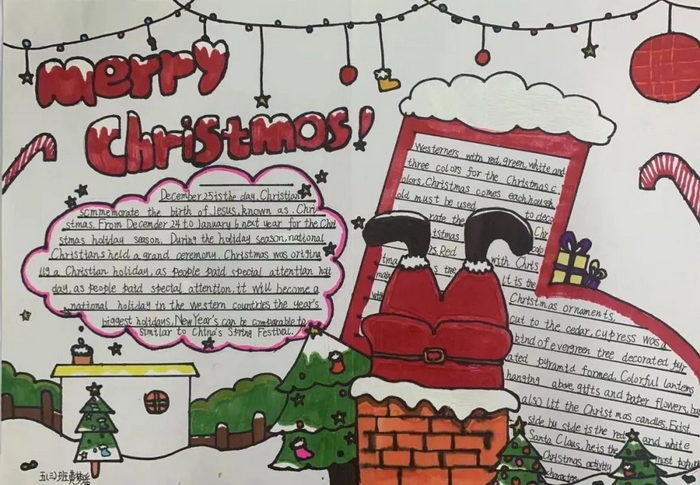 Merry
Christmas!
December 25 is the day. Christian
s commemorate the birth of Jesus, known as. Chri
stmas. From Decemder 24 to January 6 next year for the Chri
stmas holiday season. During the holiday season, national
Christians held a grand ceremony. Christmas was origing
lly a Christian holiday, as people paid special attention
day, as people paid special attention, it will become a
national holiday in the western countries the year's
biggest holidays, New Year's can be comparable to
similar to China's Spring Festival.
Westerners with red, green, white and
three colors for the Christmas c
olors, Christmas comes each
old must be used to deco
rate the
stmas
Red with Chris
is the it is the
Christmas ornaments,
cut to the cedar, cypress was a
kind of evergreen tree decorated
ated pyramid formed. Colorful lanterns
hanging above, gifts and paper flowers,
also lit the Christmas candles. Exist
side by side is the red and white
Santa Claus, he is the most
Christmas activity
character
五(三)班